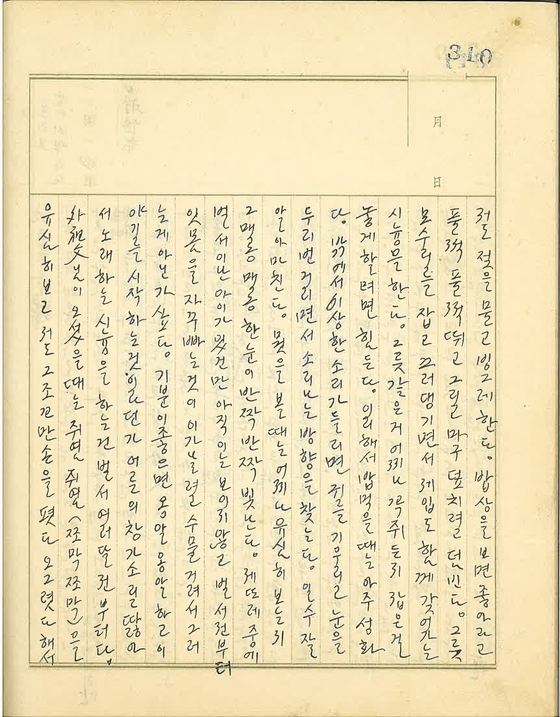 310
月
日
절 젖을 물고 빙그레 한다. 밥상을 보면 좋아라고
풀쩍 풀쩍 뛰고 그리고 마구 덮치려 덤빈다. 그릇
모수리를 잡고 끄러댕기면서 제입도 함께 갖어가는
시늉을 한다. 그릇같은거 어찌나 꼭 쥐는지 잡은걸
놓게 할려면 힘든다. 이리해서 밥먹을때는 아주 성화
다. 밖에서 이상한 소리가 들리면 귀를 기우리고 눈을
두리번거리면서 소리나는 방향을 찾는다. 일수 잘
알아마친다. 몇을 볼때는 어찌나 유심히 보는지
그 매롱 매롱한 눈이 반짝반짝 빛난다. 제또레 중에
벌서 이난 아이가 있건만 아직 이는 보이지 않고 벌서전부터
잇몸을 자꾸 빠는것이 이가 나려고 수물거려서 그러
는게 아닌가 싶다. 기분이 좋으면 옹알옹알 하고 이
야기를 시작하는것이라던가 어른의 창가소리를 딿아
서 노래하는 시늉을 하는건 벌서 여러달 전부터다.
外祖父님이 오셨을때는 쥐염쥐염(쪼막쪼막)을
유심히 보고 저도 그 조꼬만 손을 폈다 오그렸다 해서